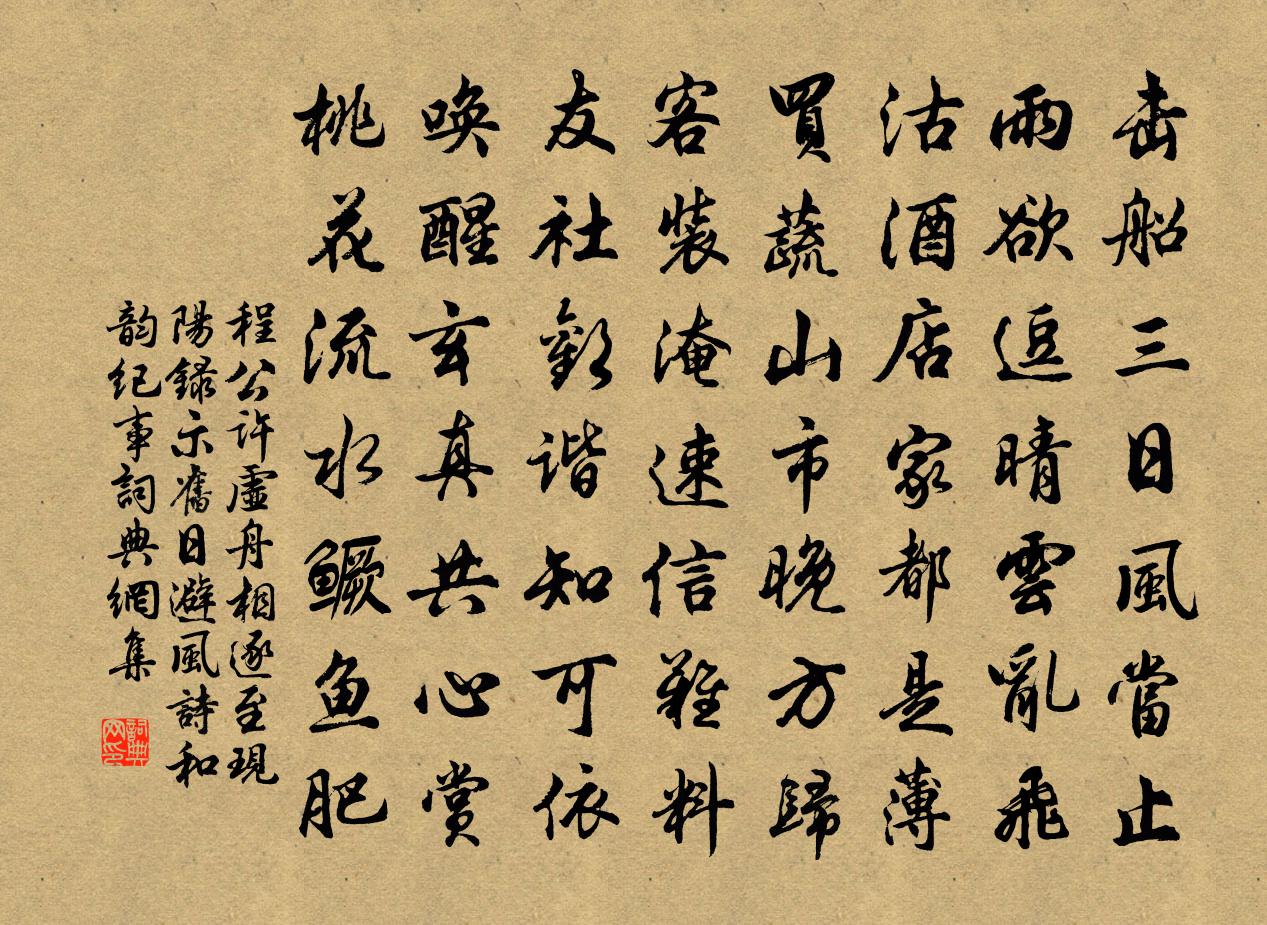 击船三日風當止
雨欲逗晴雲亂飛
沽酒店家都是薄
買蔬山市晚方歸
客裝淹速信難料
友社歡諧知可依
喚醒玄真共心賞
桃花流水鱖鱼肥
程公許虛舟相逐至現
陽錄示舊日避風詩和
韵紀事詞典網集
詞典网印